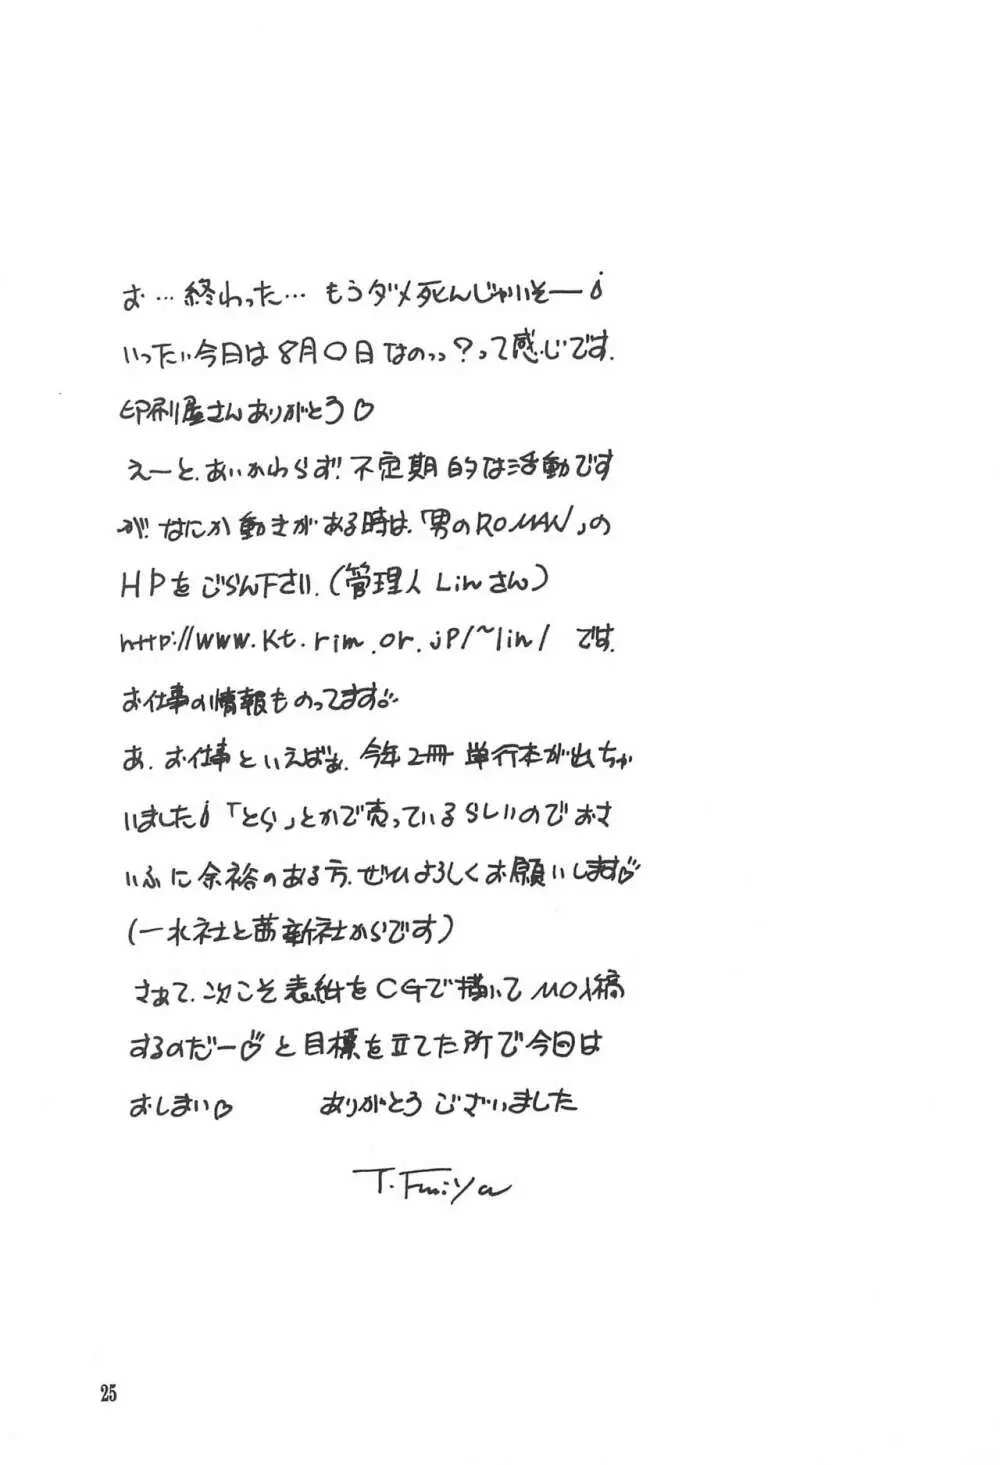 お…終わった… もうダメ死んじゃいそー!
いったい今日は8月〇日なのっっ?って感じです.
印刷屋さんありがとう♡
えーと、あいかわらず!不定期的な活動です
が、なにか動きがある時は、「男のROMAN」の
HPをごらん下さい.(管理人Linさん)
http://www.kt.rim.or.jp/~lin/ です.
お仕事の情報ものってます。
あ、お仕事といえばぁ、今年2冊 単行本が出ちゃ
いました!「とら」とかで売っているらしいのでおさ
いふに余裕のある方、ぜひよろしくお願いします♡
(一水社と茜新社からです)
さぁて、次こそ表紙をCGで描いてMO入稿
するのだー♡と目標を立てた所で今回は
おしまい♡ ありがとうございました
T.Fujiya
25